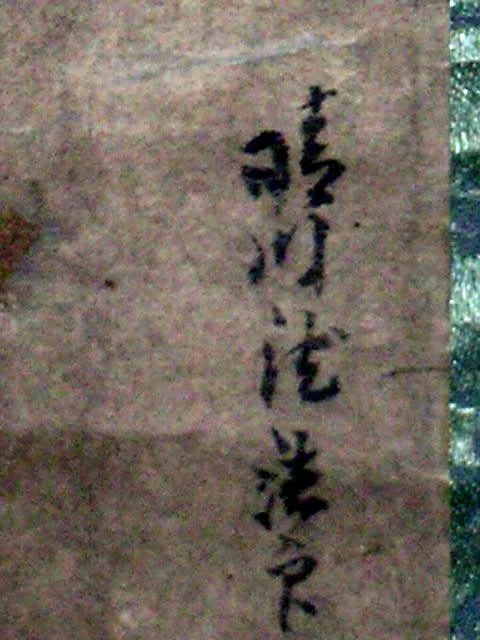 晴川院法印